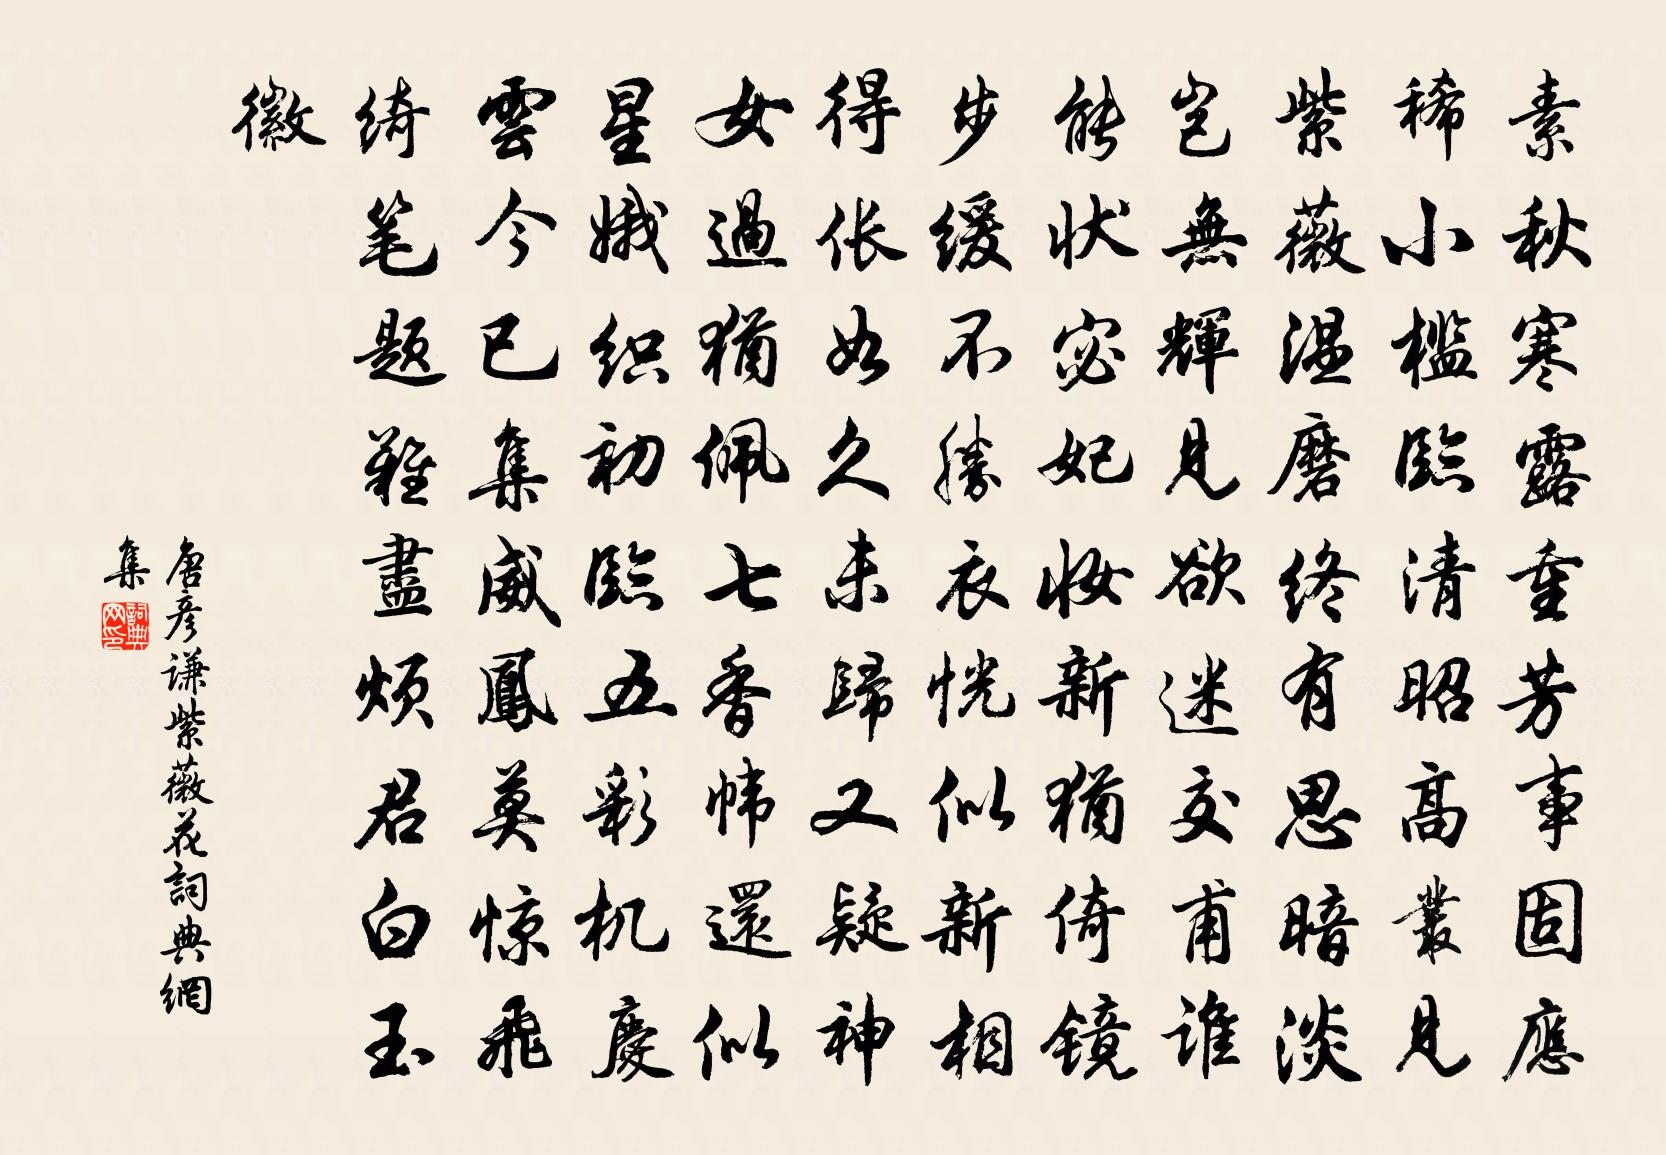 素秋寒露重芳事固應
稀小槛臨清昭高叢見
紫薇温磨终有思暗淡
岂無輝見欲迷交甫谁
能状宓妃妆新猶倚镜
步缓不勝衣恍似新相
得伥如久未歸又疑神
女過猶佩七香帏還似
星娥织初臨五彩机慶
雲今已集威鳳莫惊飛
绮笔题難盡烦君白玉
徽
唐彦谦紫薇花詞典網
集
詞典
网印